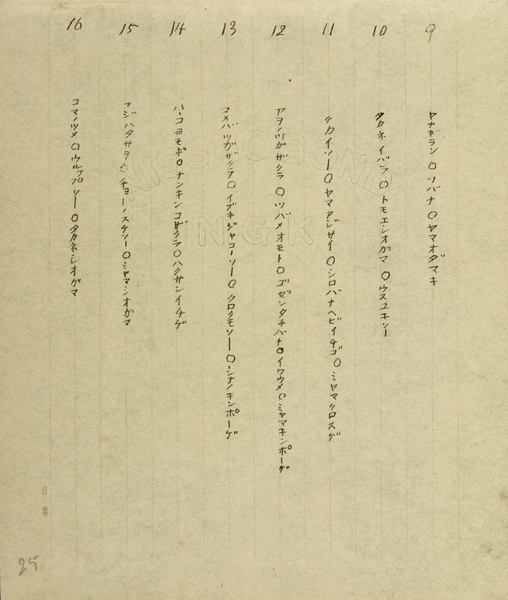 9 ヤナギラン○ソバナ○ヤマオダマキ
10 タカネイバラ○トモエシオガマ○ウスユキソー
11 クカイソー○ヤマアジサイ○シロバナヘビイチゴ○ミヤマクロスゲ
12 アヲノツガザクラ○ツバメオモト○ユゼンタチバナ○イワウメ○ミヤマキンポーゲ
13 コメバツガザクラ○イブキジャコーソー○クロクモソー○シナノキンポーゲ
14 ハヽコヨモギ○ナンキンコザクラ○ハクサンイチゲ
15 フジハタザヲ○チョーノスケソー○ミヤマシオガマ
16 コマノツメ○ウルップソー○タカネシオガマ
25
NGK